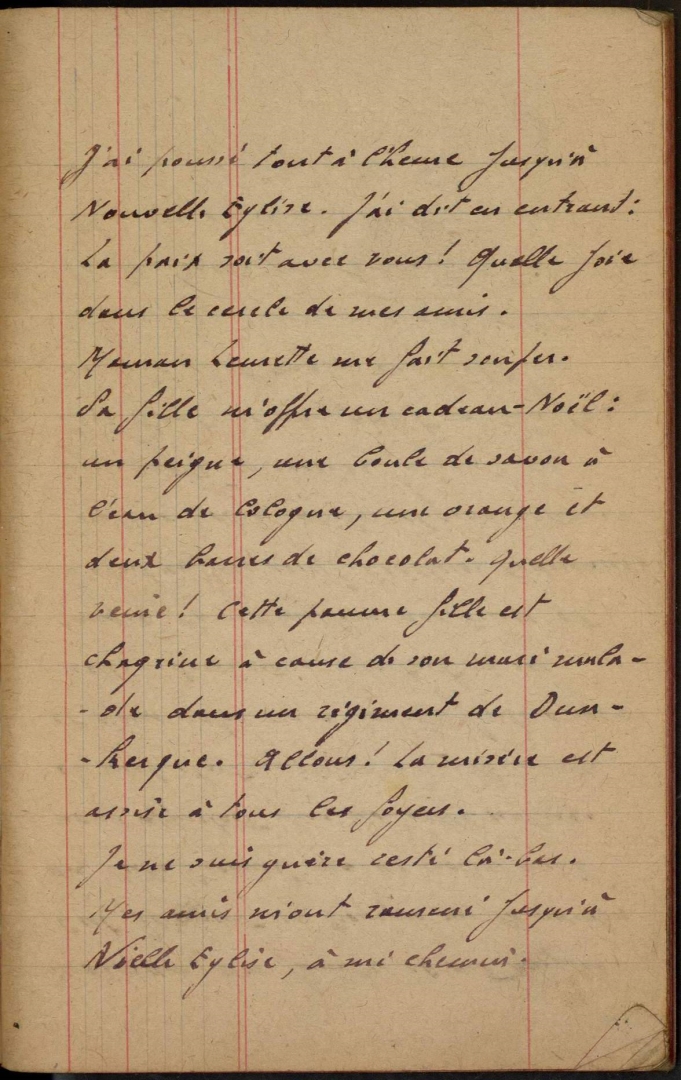 J'ai poussé tout à l'heure jusqu'à
Nouvelle Eglise. J'ai dit en entrant:
La paix soit avec vous! Quelle joie
dans le cercle de mes amis.
Maman Leurette me fait souper.
Sa fille m'offre un cadeau-Noël:
un peigne, une boule de savon à
l'eau de Cologne, une orange et
deux barres de chocolat. Quelle
veine! Cette pauvre fille est
chagrine à cause de son mari mala-
-de dans un régiment de Dun-
-kerque. Allons! La misère est
assise à tous les foyers.
Je ne suis guère resté là-bas.
Mes amis m'ont ramené jusqu'à
Vieille Eglise, à mi chemin.